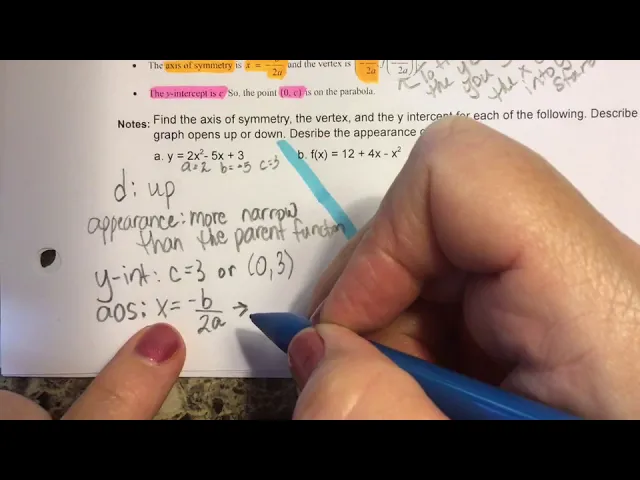 • The axis of symmetry is x = -b/2a and the vertex is
To the y
you the x
the into y
• The y-intercept is c So, the point (0, c) is on the parabola.
Notes: Find the axis of symmetry, the vertex, and the y intercept for each of the following. Describe
graph opens up or down. Desribe the appearance
a. y = 2x² - 5x + 3 b. f(x) = 12 + 4x - x²
a=2 b=-5 c=3
d: up
appearance: more narrow
than the parent function
y-int: c=3 or (0,3)
aos: x = -b/2a →